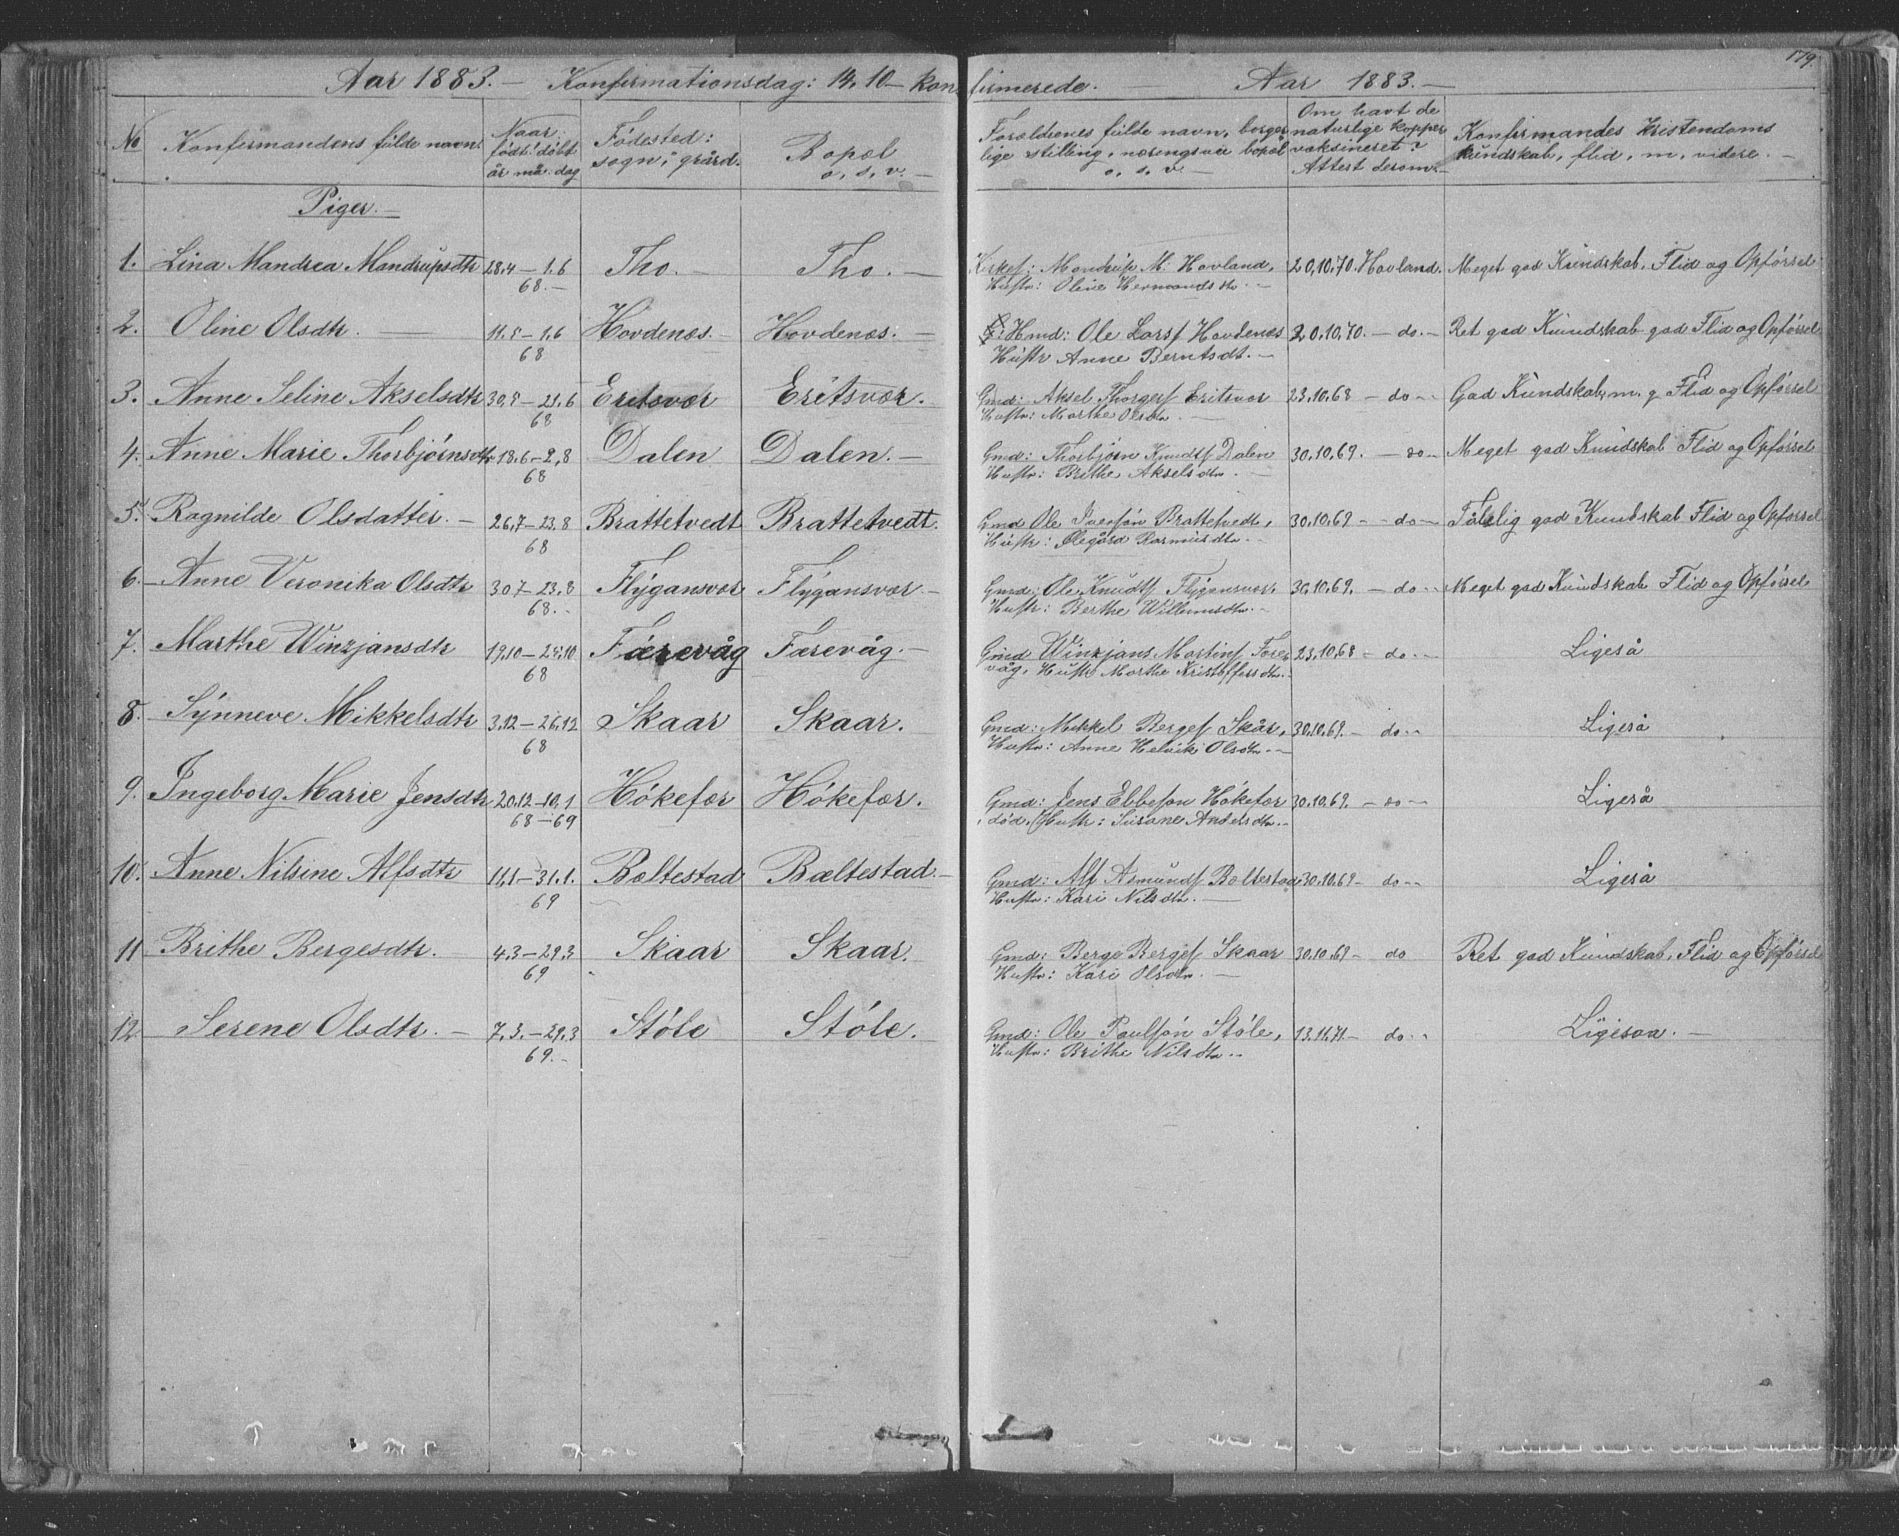 179.
Aar 1883. — Konfirmationsdag: 14. 10 — konfirmerede. — Aar 1883. —
No | Konfirmandens fulde navn. | Naar født: døbt år må. dag | Fødested: sogn, gård. | Bopæl o. s. v. — | Forældrenes fulde navn, borgerlige stilling, næringsvei bopæl o. s. v. — | Om havt de naturlige kopper vaksineret? Attest derom. | Konfirmandes kristendoms kundskab, flid, m. videre. —
Piger. —
1. Lina Mandrea Mandrupsdtr 28.4 — 1.6 Tho. — Tho. — Mandrup M. Hovland. 20.10.70. Hovland. Meget god Kundskab, Flid og Opførsel
68. — Hustr: Oline Hermandsdtr. —
2. Oline Olsdtr. — 11.5 — 1.6 Hovdenæs. — Hovdenæs. — Hmd: Ole Larsf Hovdenæs 20.10.70. — do. — Ret god Kundskab god Flid og Opførsel
68 Hustr Anne Berntsdt. —
3. Anne Seline Akselsdtr 30.5 — 21.6 Eritsvær Eritsvær. Gmd: Aksel Thorgersf Eritsvær 23.10.68 — do — God Kundskab, m. g Flid og Opførsel
68 Hustr: Marthe Olsdtr —
4. Anne Marie Thorbjørnsdtr 18.6 — 2.8 Dalen Dalen. — Gmd: Thorbjørn Knudtsf Dalen 30.10.69. — do — Meget god Kundskab Flid og Opførsel
68 Hustr: Brithe Akselsdtr. —
5. Ragnilde Olsdatter. — 26.7 — 23.8 Brattetvedt Brattetvedt. Gmd Ole Iversøn Brattetvedt, 30.10.69 — do — Tålelig god Kundskab Flid og Opførsel
68 Hustr: Ølegård Rasmusdtr. —
6. Anne Veronika Olsdtr 30.7 — 23.8 Flygansvær Flygansvær — Gmd: Ole Knudtsf Flygansvær, 30.10.69. — do — Meget god Kundskab Flid og Opførsel
68. — Hustr: Berthe Willumsdtr. —
7. Marthe Winzjansdtr 19.10 — 25.10 Færevåg Færevåg. — Gmd Winzjans Martinsf Fære- 23.10.68 — do — Ligeså
68 våg, Hustr Marthe Kristoffersdtr. —
8. Synneve Mikkelsdtr 3.12 — 26.12 Skaar Skaar. Gmd: Mikkel Bergesf Skår, 30.10.69. — do — Ligeså
68 Hustr: Anne Helviki Olsdtr. —
9. Ingeborg Marie Jensdtr 20.12 — 10.1 Høkefær Høkefær. Gmd: Jens Ebbesøn Høkefær 30.10.69. — do — Ligeså
68 — 69 død. Hustr: Susane Andersdtr. —
10. Anne Nilsine Alfsdtr 11.1 — 31.1. Bæltestad Bæltestad. — Gmd: Alf Asmundsf Bæltestad 30.10.69 — do — Ligeså
69 Hustr: Kari Nilsdtr. —
11 Brithe Bergesdtr. 4.3 — 29.3 Skaar Skaar. Gmd: Berge Bergesf Skaar 30.10.69 — do Ret god Kundskab, Flid og Opførsel
69 Hustr: Kari Olsdtr. —
12 Serene Olsdtr. — 7.3. — 29.3 Støle Støle. Gmd: Ole Paulsøn Støle, 13.11.71 — do — Ligesaa. —
69. — Hustr: Brithe Nilsdtr. —